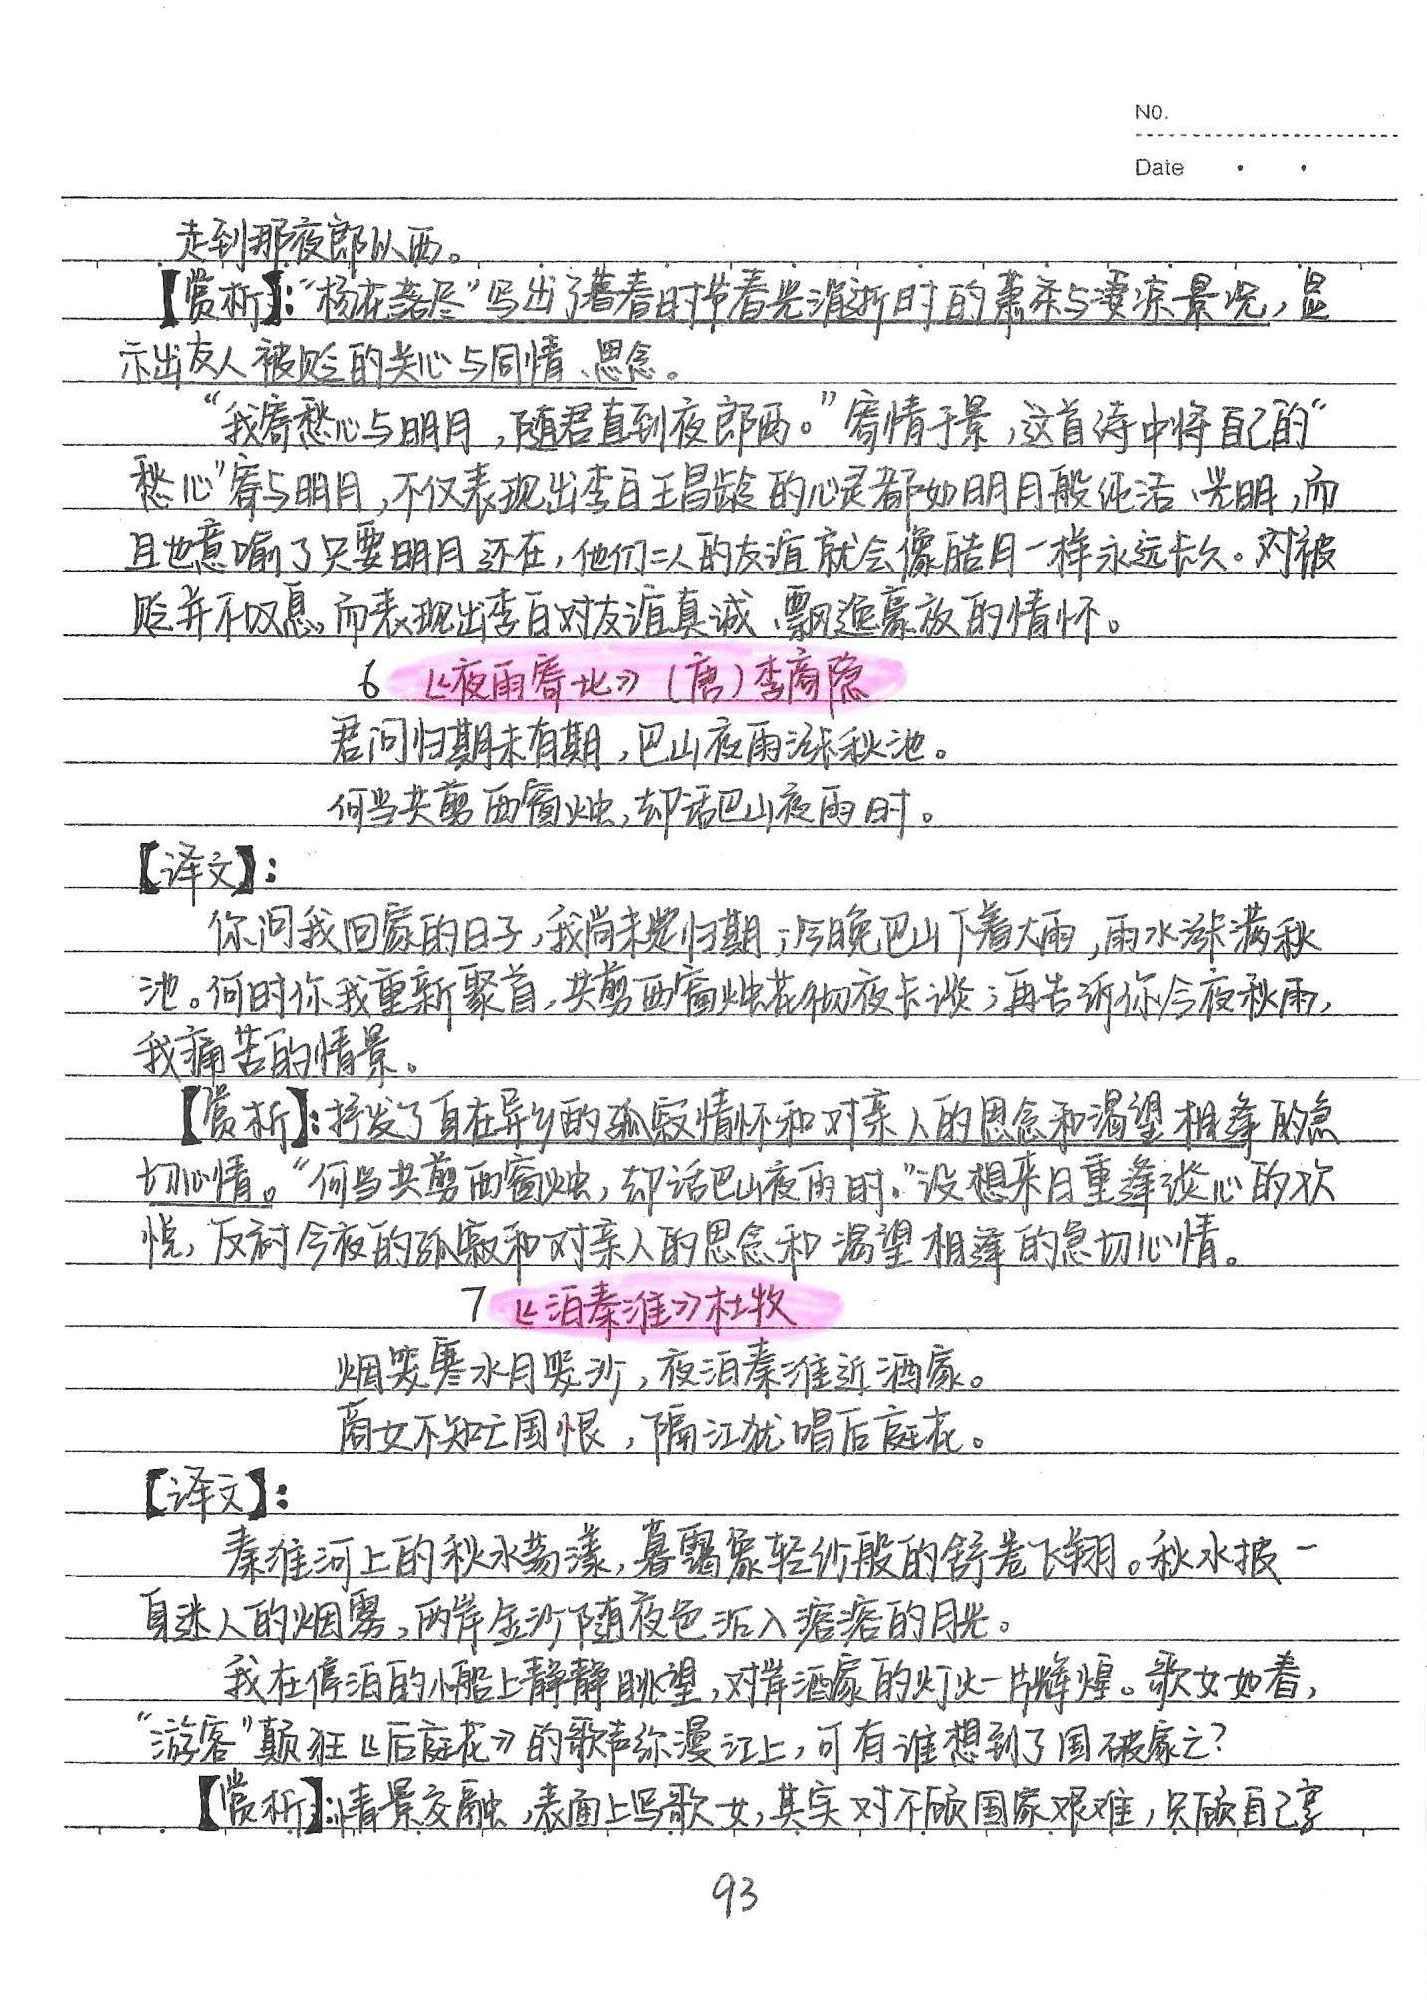 NO.
Date
走到那夜郎以西。
【赏析】:“杨花落尽”写出了暮春时节春光消逝时的萧条与凄凉景况，显
示出友人被贬的关心与同情、思念。
“我寄愁心与明月，随君直到夜郎西。”寄情于景，这首诗中将自己的“
愁心”寄与明月，不仅表现出李白王昌龄的心灵都如明月般纯洁、光明，而
且也意喻了只要明月还在，他们二人的友谊就会像皓月一样永远长久。对被
贬并不叹息，而表现出李白对友谊真诚、飘逸豪放的情怀。
6 《夜雨寄北》（唐）李商隐
君问归期未有期，巴山夜雨涨秋池。
何当共剪西窗烛，却话巴山夜雨时。
【译文】:
你问我回家的日子，我尚未定归期；今晚巴山下着大雨，雨水涨满秋
池。何时你我重新聚首，共剪西窗烛花彻夜长谈；再告诉你今夜秋雨，
我痛苦的情景。
【赏析】:抒发了身在异乡的孤寂情怀和对亲人的思念和渴望相逢的急
切心情。“何当共剪西窗烛，却话巴山夜雨时。”设想来日重逢谈心的欢
悦，反衬今夜的孤寂和对亲人的思念和渴望相逢的急切心情。
7 《泊秦淮》杜牧
烟笼寒水月笼沙，夜泊秦淮近酒家。
商女不知亡国恨，隔江犹唱后庭花。
【译文】:
秦淮河上的秋水荡漾，暮霭象轻纱般的舒卷飞翔。秋水披一
身迷人的烟雾，两岸金沙随夜色沉入溶溶的月光。
我在停泊的小船上静静眺望，对岸酒家的灯火一片辉煌。歌女如春，
“游客”颠狂《后庭花》的歌声弥漫江上，可有谁想到了国破家亡?
【赏析】:情景交融，表面上写歌女，其实对不顾国家艰难，只顾自己享
93